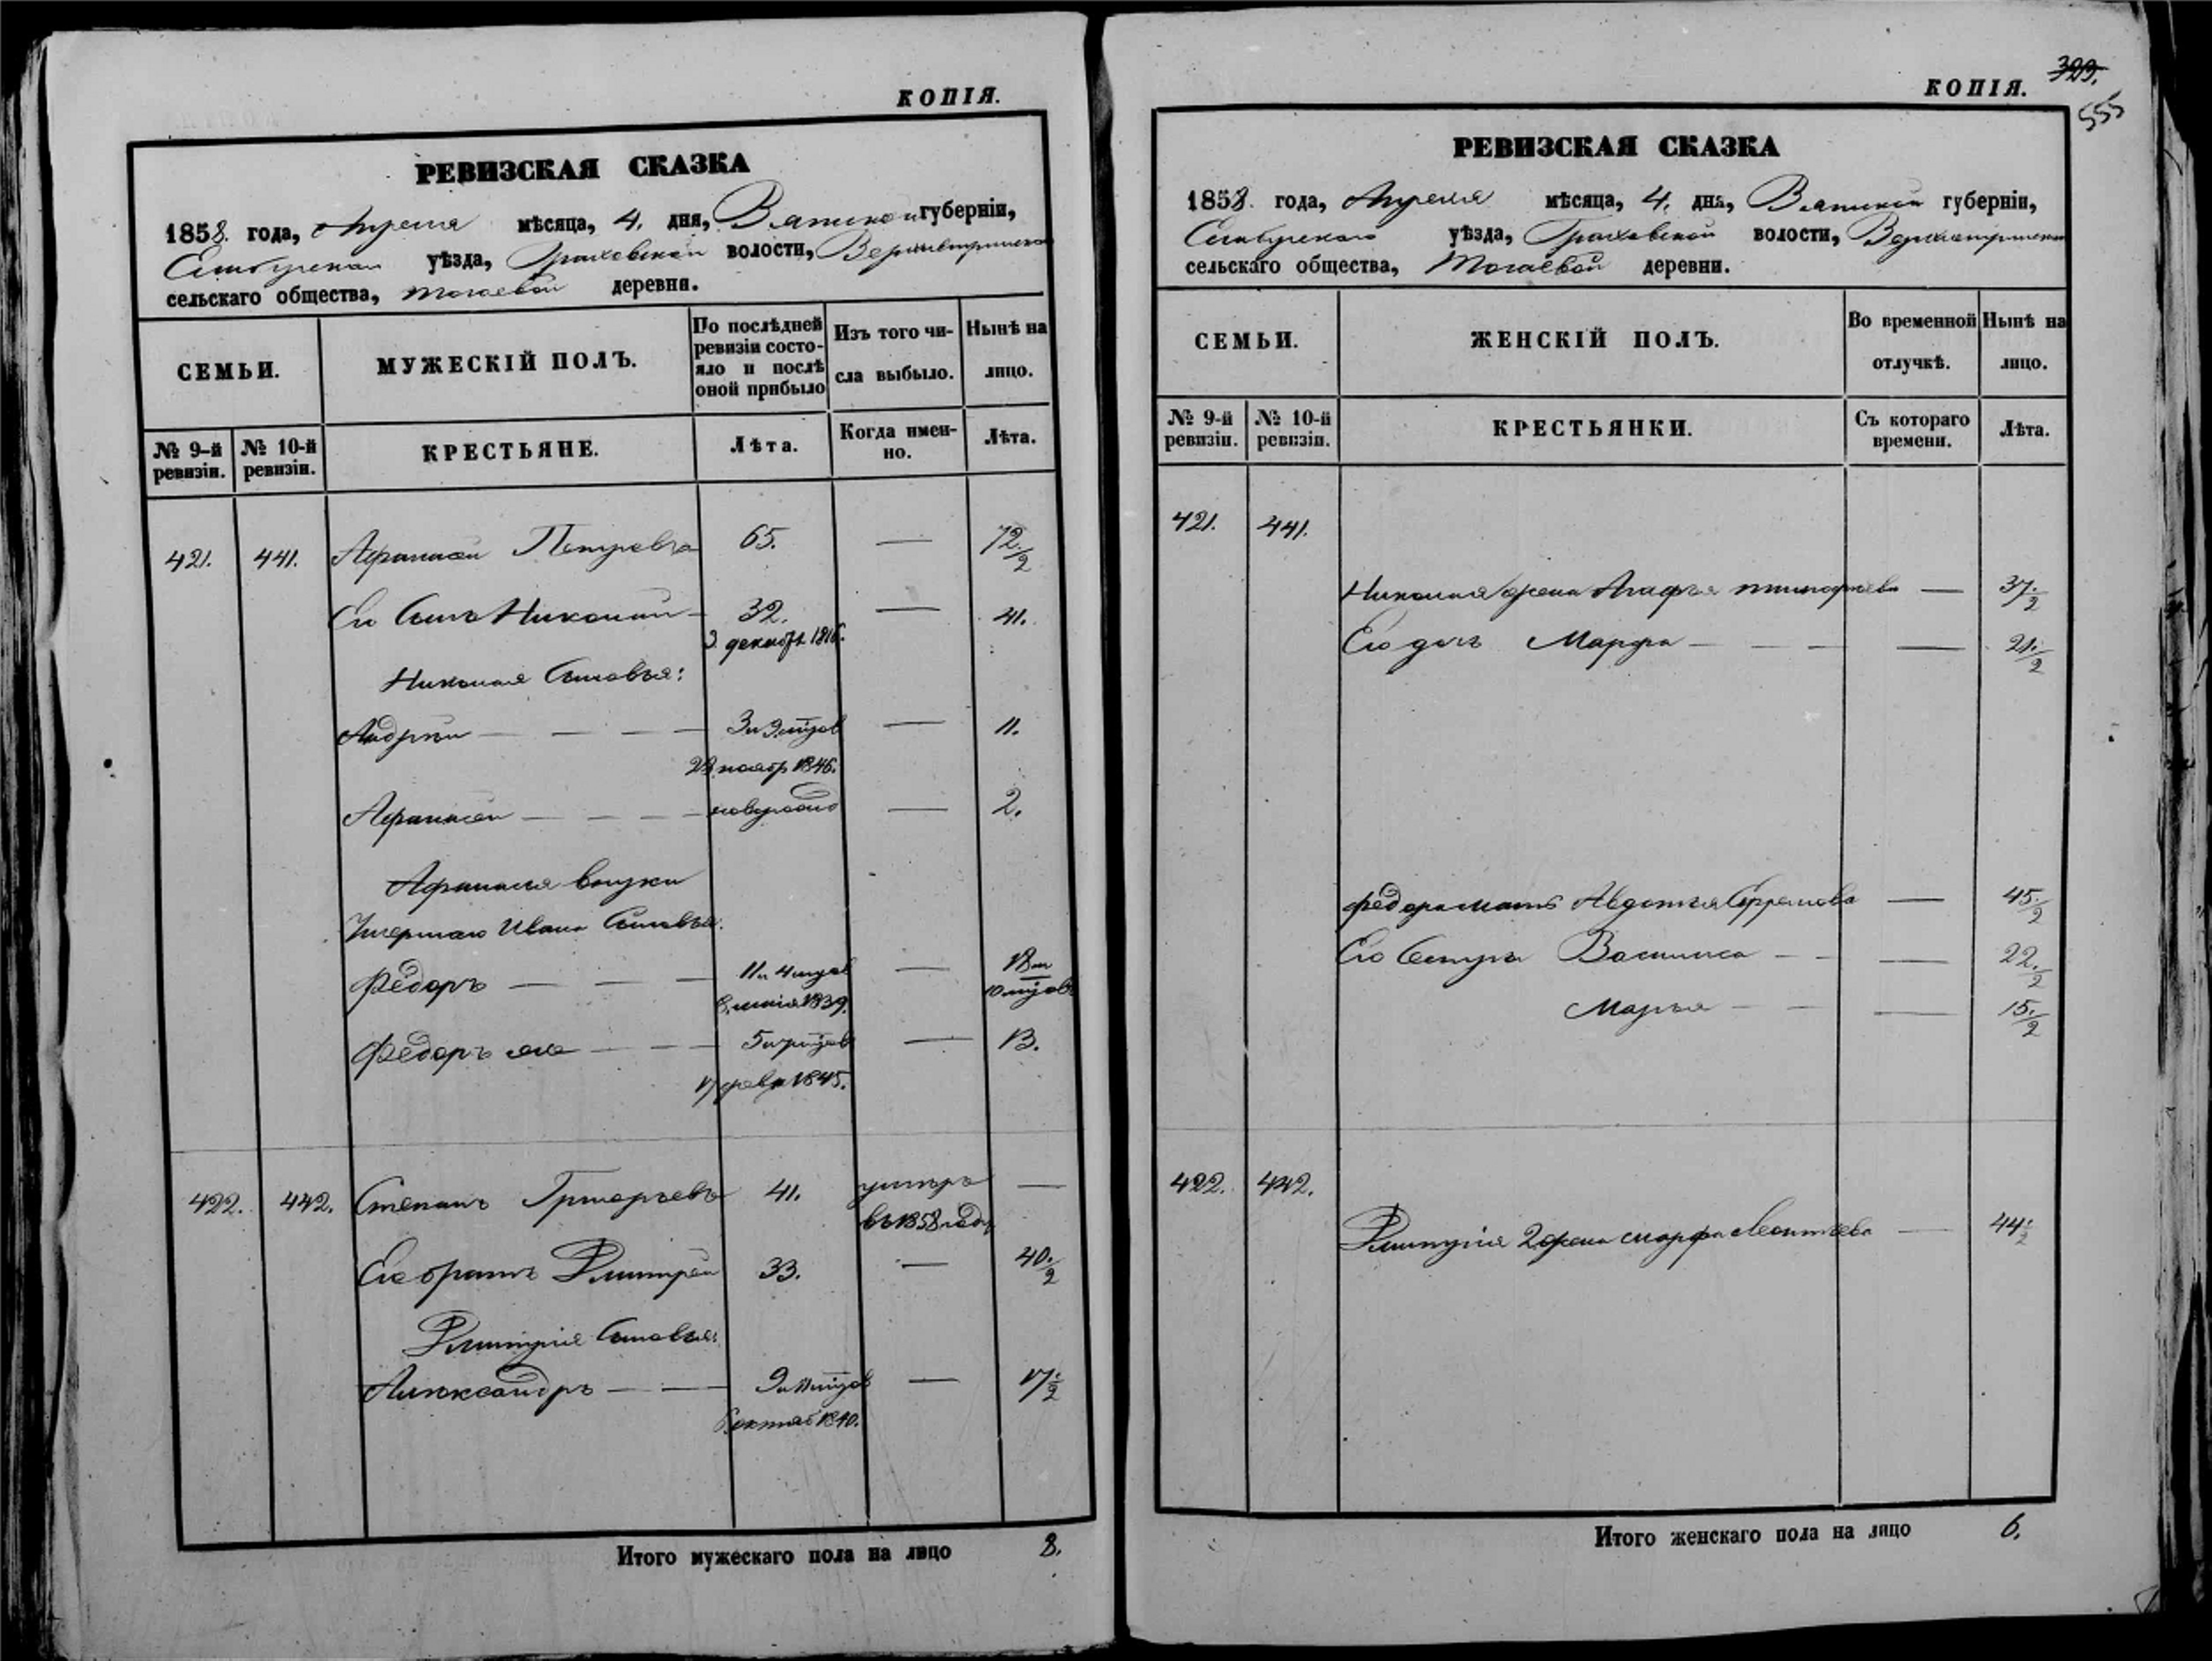 КОПІЯ.
РЕВИЗСКАЯ СКАЗКА
1858. года, Апреля мѣсяца, 4. дня, Вятской губерніи,
Елабугскаго уѣзда, Граховской волости,
сельскаго общества, деревни.
СЕМЬИ.
МУЖЕСКІЙ ПОЛЪ.
По послѣдней ревизіи состояло и послѣ оной прибыло
Изъ того числа выбыло.
Нынѣ на лицо.
№ 9-й ревизіи.
№ 10-й ревизіи.
КРЕСТЬЯНЕ.
Лѣта.
Когда именно.
Лѣта.
421. 441. Афанасей Петровъ 65. — 72./2
Его Сынъ Николай 32. — 41.
3 декабр. 1816.
Николая Сыновья:
Андрей — — — 3 и 9 мцов — 11.
ноябр 1846.
Афанасей — — — новорожд — 2.
Афанасья внуки
Умершаго Ивана Сыновья:
Федоръ — — — 11 и 4 мцов — 18 и
10 мцовъ
1839.
Федоръ же — — — 5 — 13.
17 февр 1845.
422. 442. Степанъ Григорьевъ 41. умеръ —
въ 1858 году
Его братъ Дмитрей 33. — 40./2
Дмитрія Сыновья:
Александръ — — 9 — 17./2
октяб 1840.
Итого мужескаго пола на лицо 8.
КОПІЯ.
323.
555
РЕВИЗСКАЯ СКАЗКА
1858. года, Апреля мѣсяца, 4. дня, Вятской губерніи,
Елабугскаго уѣзда, Граховской волости,
сельскаго общества, деревни.
СЕМЬИ.
ЖЕНСКІЙ ПОЛЪ.
Во временной отлучкѣ.
Нынѣ на лицо.
№ 9-й ревизіи.
№ 10-й ревизіи.
КРЕСТЬЯНКИ.
Съ котораго времени.
Лѣта.
421. 441.
Николая жена Агафья тимофеева — 37./2
Его дочь Марфа — — — — 21./2
Федора мать Авдотья Ефремова — 45./2
Его Сестры Василиса — — — 22./2
Марья — — — 15./2
422. 442.
Дмитрія 2 жена марфа Леонтьева — 44./2
Итого женскаго пола на лицо 6.